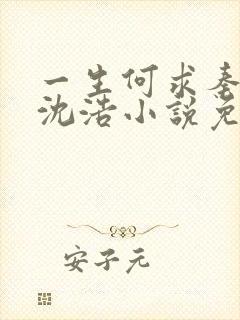 一生何求秦
沈浩小説免
安子元